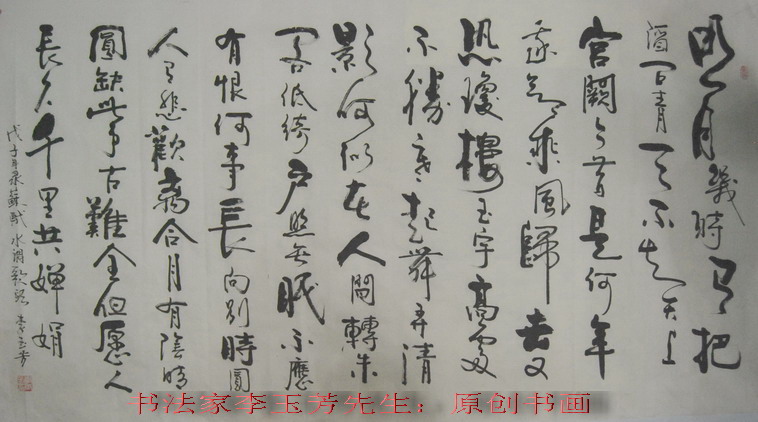 明月幾時有把
酒问青天不知天上
宫闕今昔是何年
我欲乘風歸去又
恐瓊樓玉宇高處
不勝寒起舞弄清
影何似在人間轉朱
阁低绮户照無眠不應
有恨何事長向别時圓
人有悲歡離合月有陰晴
圓缺此事古難全但愿人
長久千里共嬋娟
戊子年录蘇軾水調歌頭 李玉芳
书法家李玉芳先生：原创书画